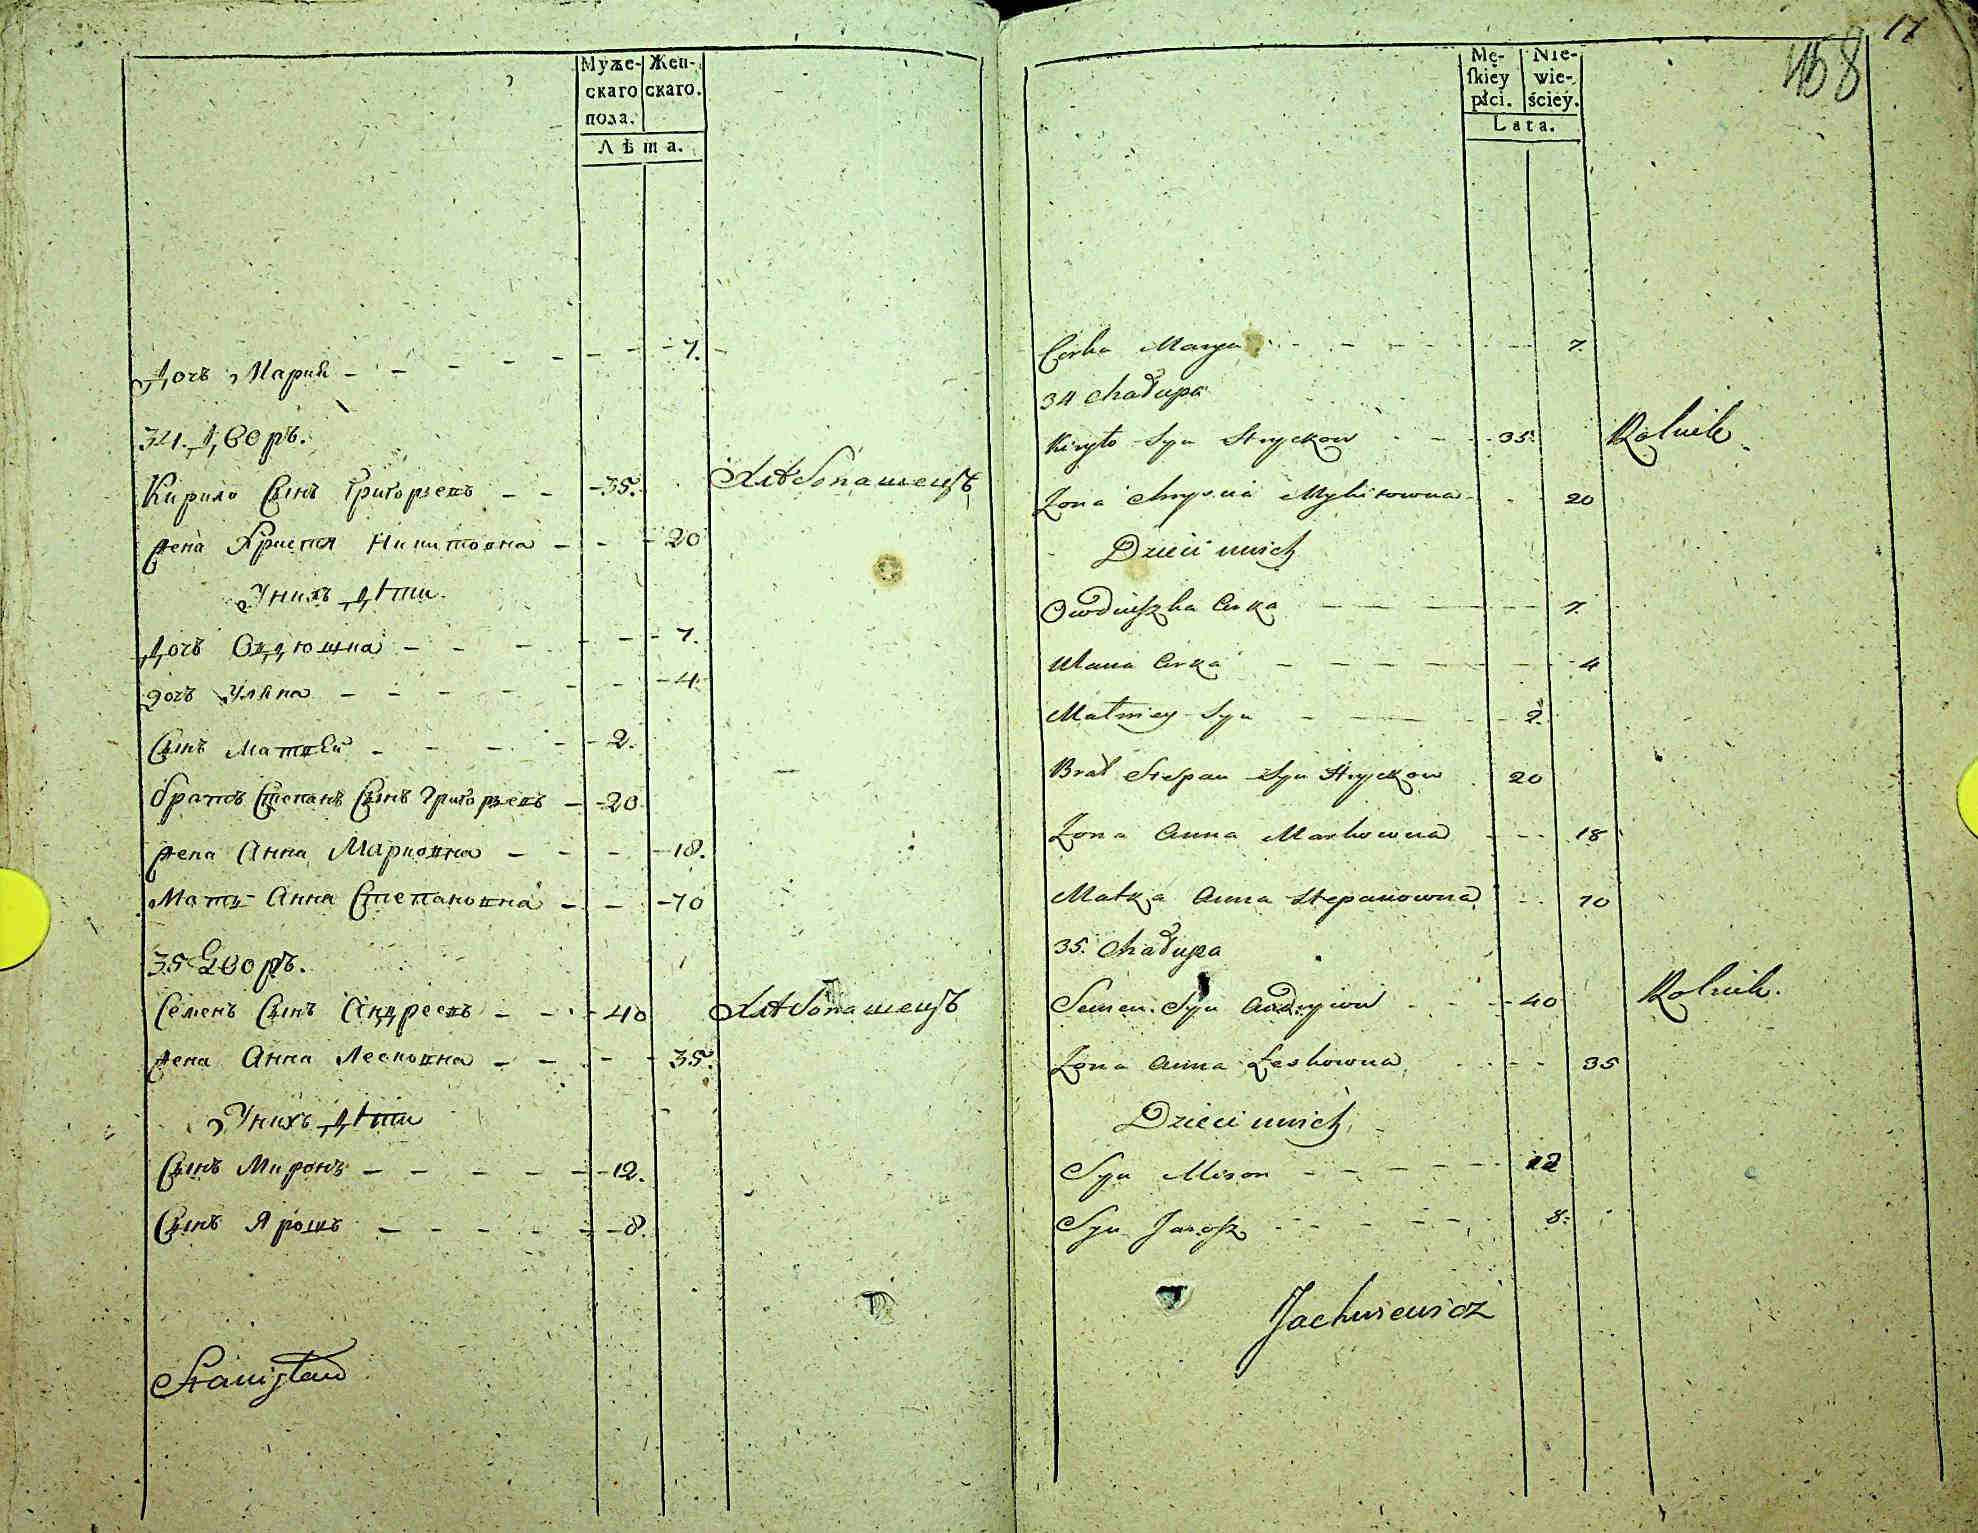 Муже-
скаго
пола.
Жен-
скаго.
Лѣта.
Дочъ Мария - - - - - - 7.
34. Дворъ.
Кирило Сынъ Григорьевъ - - 35. Хлѣбопашецъ
жена Христя Никитовна - - 20
Унихъ Дѣти
Дочъ Овдюшка - - - 7.
дочъ Уляна - - - - - 4.
Сынъ Матвѣй - - - - 2.
братъ Степанъ Сынъ Григорьевъ - 20
жена Анна Марковна - - - 18.
Мать Анна Степановна - - 70
35 Дворъ.
Семенъ Сынъ Андреевъ - - 40 Хлѣбопашецъ
жена Анна Лесковна - - - 35.
Унихъ Дѣти
Сынъ Миронъ - - - - - 12.
Сынъ Ярошъ - - - - - 8.
Stanisław
17
168
Mę-
ſkiéy
płci.
Nie-
wie-
ściey.
Lata.
Corka Marya - - - - - 7.
34 Chałupa
Kiryło Syn Hryckow - - 35. Rolnik
Żona Chrysia Mykitowna - - 20
Dzieci unich
Owdiuszka Curka - - - - 7.
Ulana Curka - - - - 4
Matwiey Syn - - - - 2.
Brat Stefpan Syn Hryckow 20
Żona Anna Markowna - - - 18
Matka Anna Stepanowna - - 70
35. Chałupa
Semen Syn Andryiow - - 40 Rolnik.
Żona Anna Leskowna - - - 35
Dzieci unich
Syn Miron - - - - 12
Syn Jarosz - - - - - 8.
Jachwiewicz